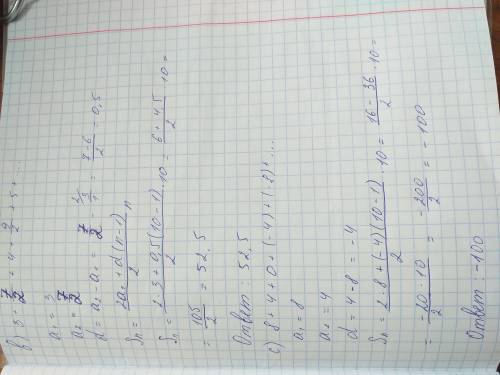 b) 3 + 7/2 + 4 + 9/2 + 5 + ...
a₁ = 3
a₂ = 7/2
d = a₂ - a₁ = 7/2 - 3/1 = (7-6)/2 = 0,5
Sn = (2a₁ + d(n-1))/2 n
Sn = (2·3 + 0,5(10-1))/2 · 10 = (6 + 4,5)/2 · 10 =
= 105/2 = 52,5
Ответ: 52,5
c) 8 + 4 + 0 + (-4) + (-8) + ...
a₁ = 8
a₂ = 4
d = 4 - 8 = -4
Sn = (2·8 + (-4)(10-1))/2 · 10 = (16 - 36)/2 · 10 =
= (-20·10)/2 = -200/2 = -100
Ответ: -100